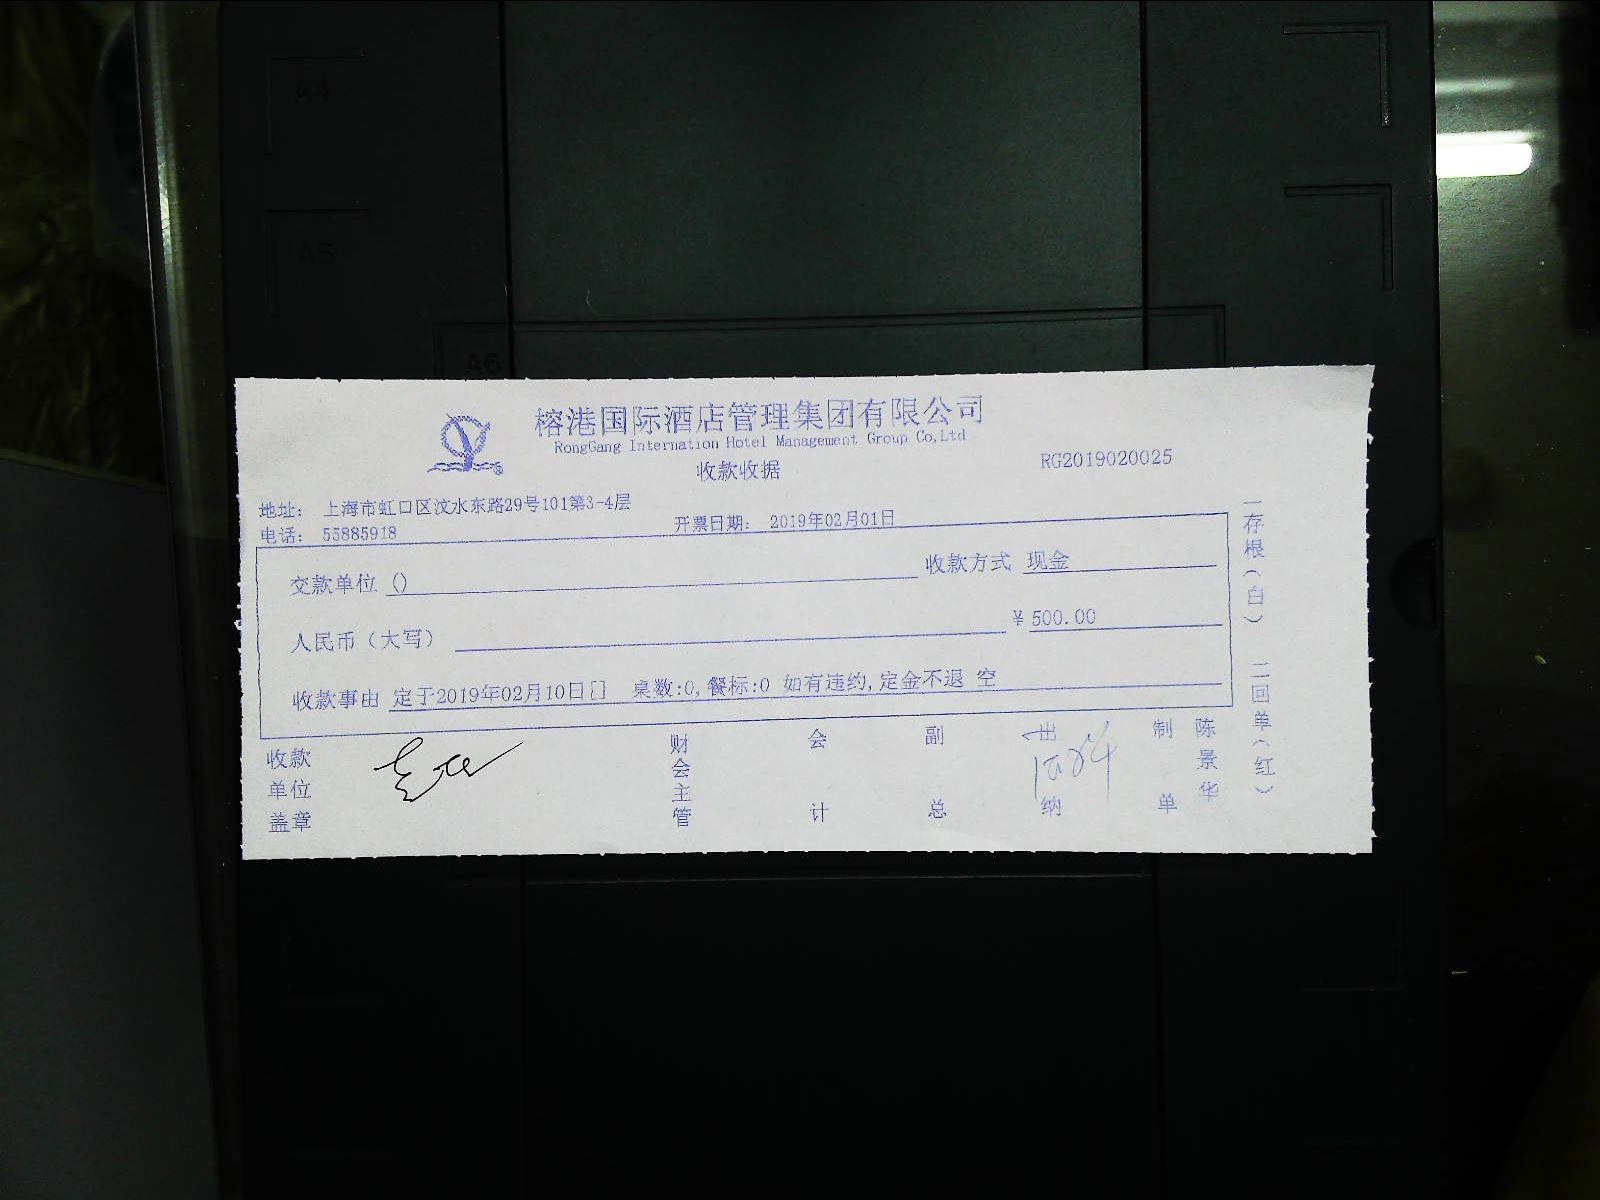 A4
A5
A6
榕港国际酒店管理集团有限公司
RongGang Internation Hotel Management Group Co,Ltd
收款收据
RG2019020025
地址： 上海市虹口区汶水东路29号101第3-4层
电话： 55885918
开票日期： 2019年02月01日
交款单位 ()
收款方式 现金
人民币（大写）
¥ 500.00
收款事由 定于2019年02月10日[] 桌数:0,餐标:0 如有违约,定金不退 空
收款单位盖章
财会主管
会计
副总
出纳
制单
陈景华
一存根（白） 二回单（红）